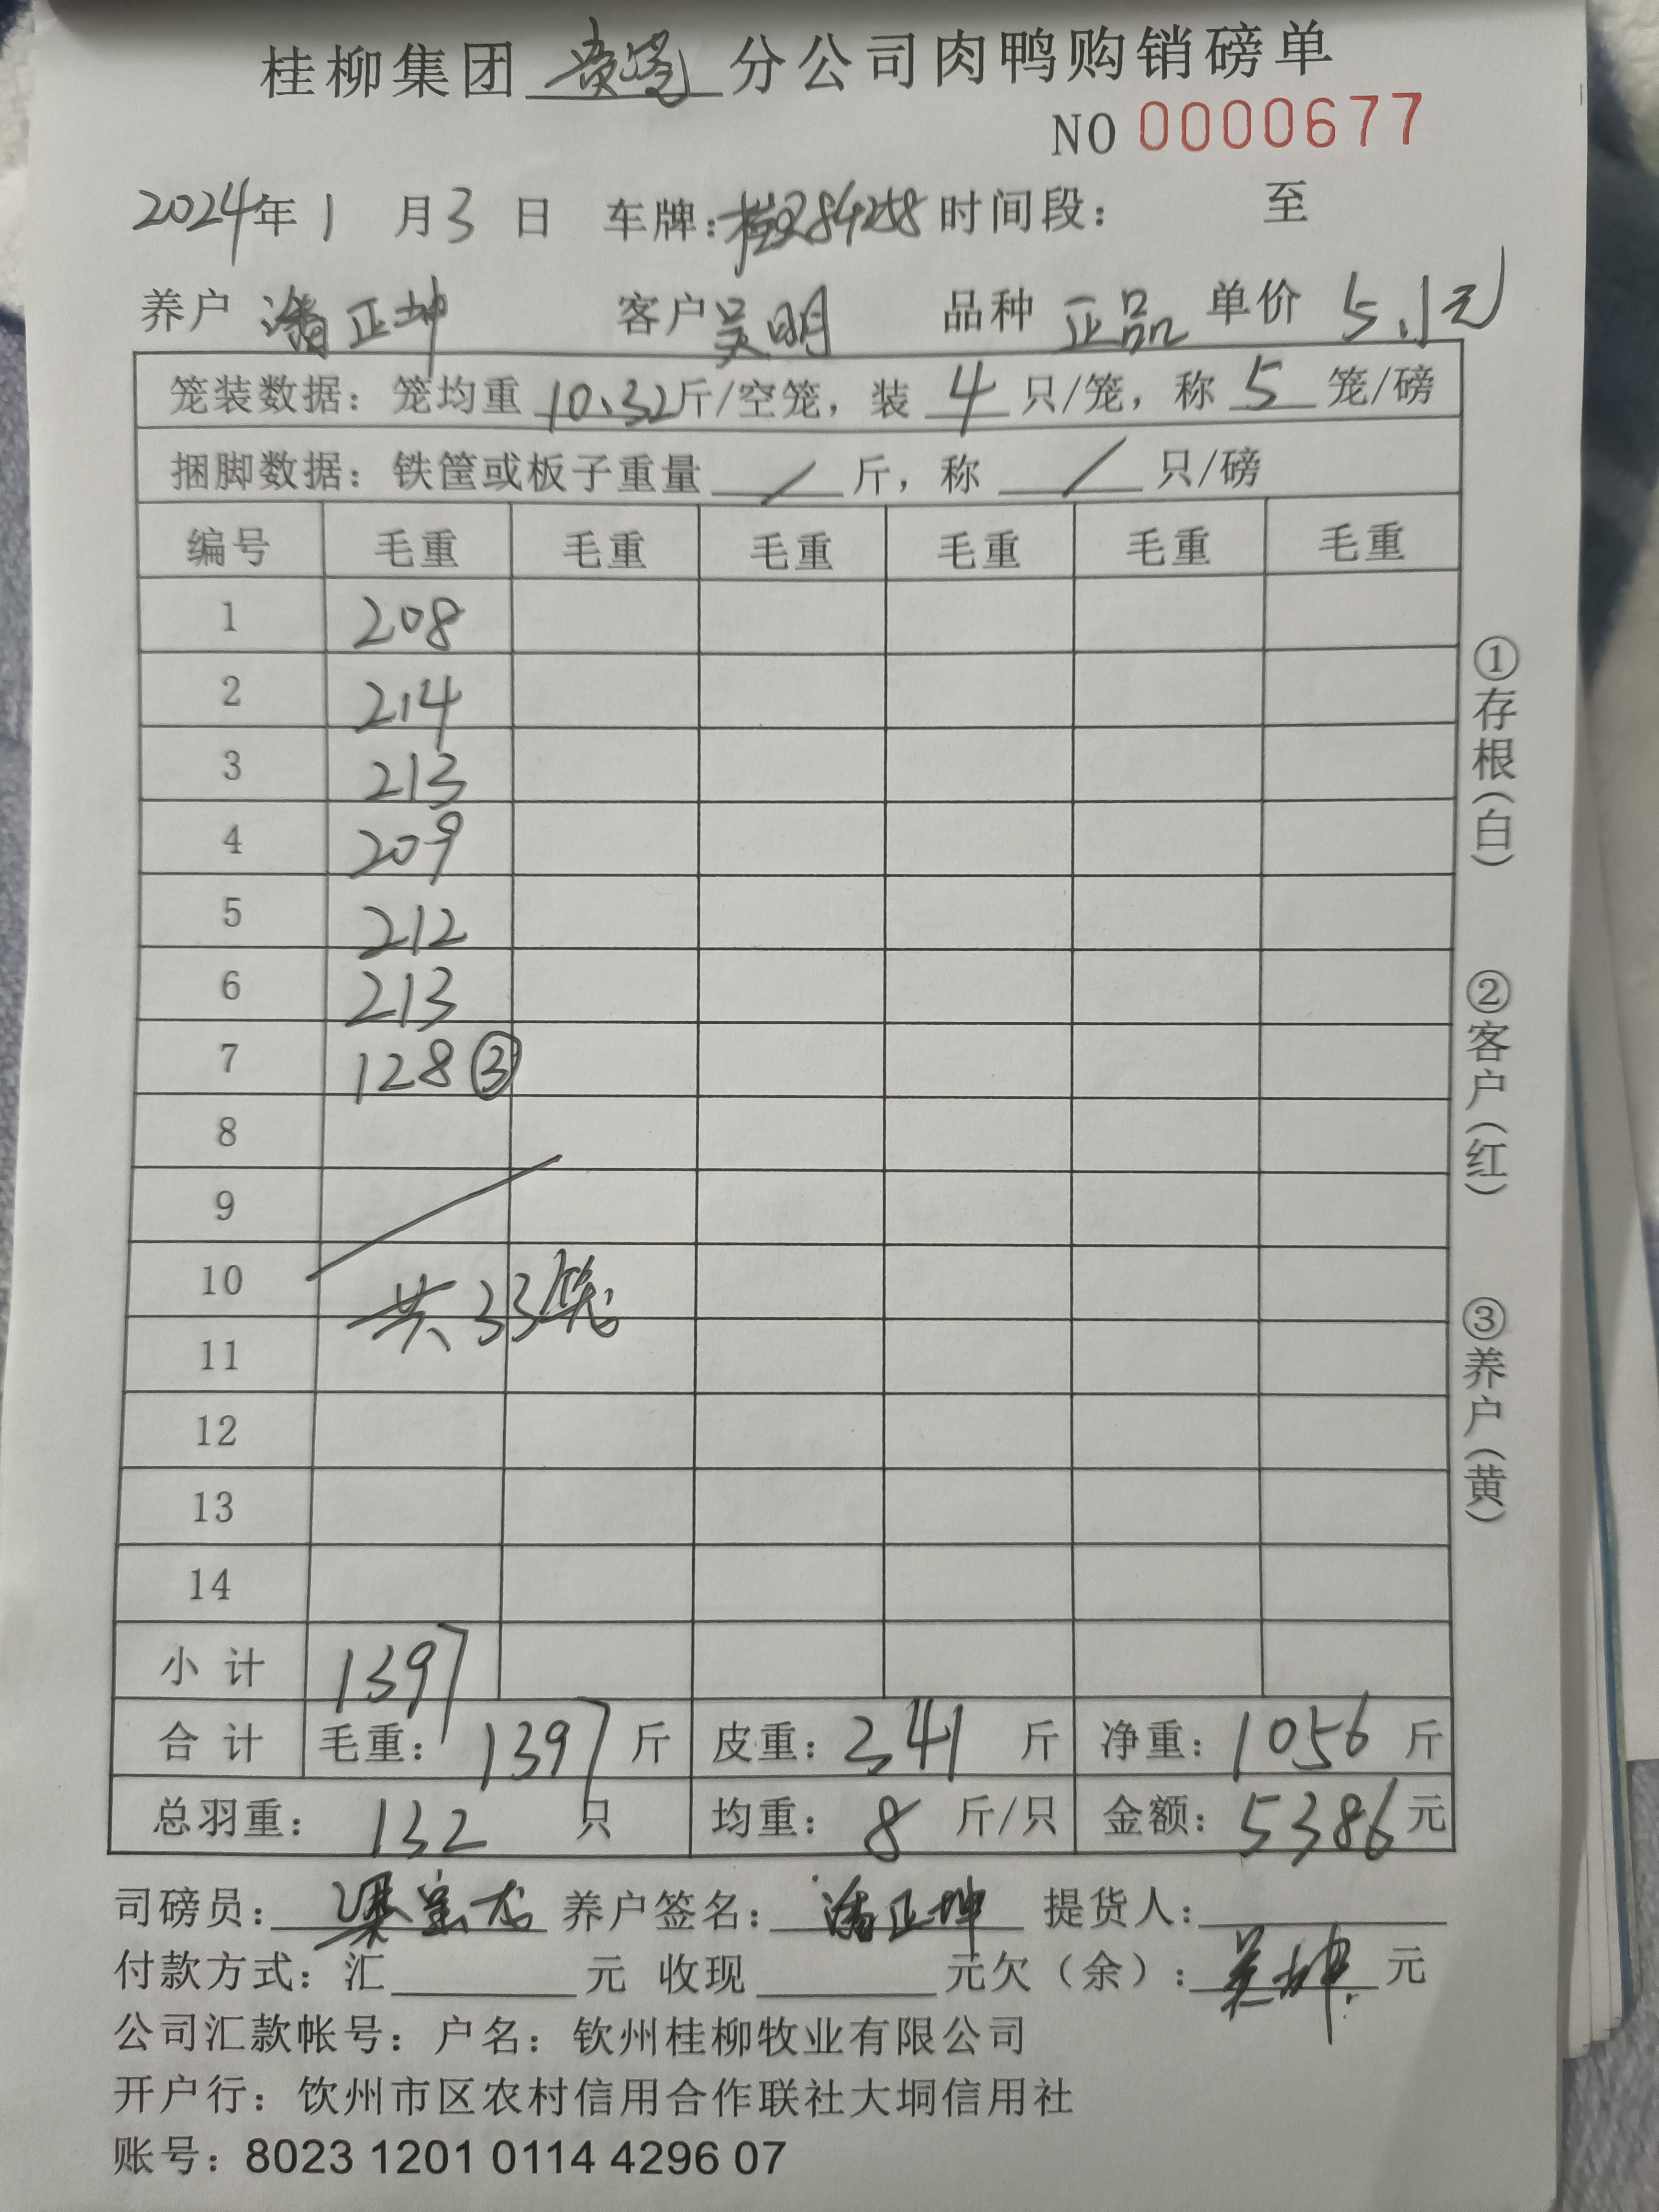 桂柳集团 分公司肉鸭购销磅单
NO 0000677
2024年 1 月 3 日 车牌: 84258 时间段: 至
养户 潘正坤 客户 吴明 品种 正品 单价 5.1元
笼装数据: 笼均重 10.32斤/空笼, 装 4 只/笼, 称 5 笼/磅
捆脚数据: 铁筐或板子重量 / 斤, 称 / 只/磅
编号 毛重 毛重 毛重 毛重 毛重 毛重
1 208
2 214
3 213
4 209
5 212
6 213
7 128 ③
8
9
10
共33笼
11
12
13
14
小 计 1397
合 计 毛重: 1397 斤 皮重: 341 斤 净重: 1056 斤
总羽重: 132 只 均重: 8 斤/只 金额: 5386 元
司磅员: 梁宝龙 养户签名: 潘正坤 提货人:
付款方式: 汇 元 收现 元欠(余): 吴坤 元
公司汇款帐号: 户名: 钦州桂柳牧业有限公司
开户行: 饮州市区农村信用合作联社大垌信用社
账号: 8023 1201 0114 4296 07
①存根(白)
②客户(红)
③养户(黄)